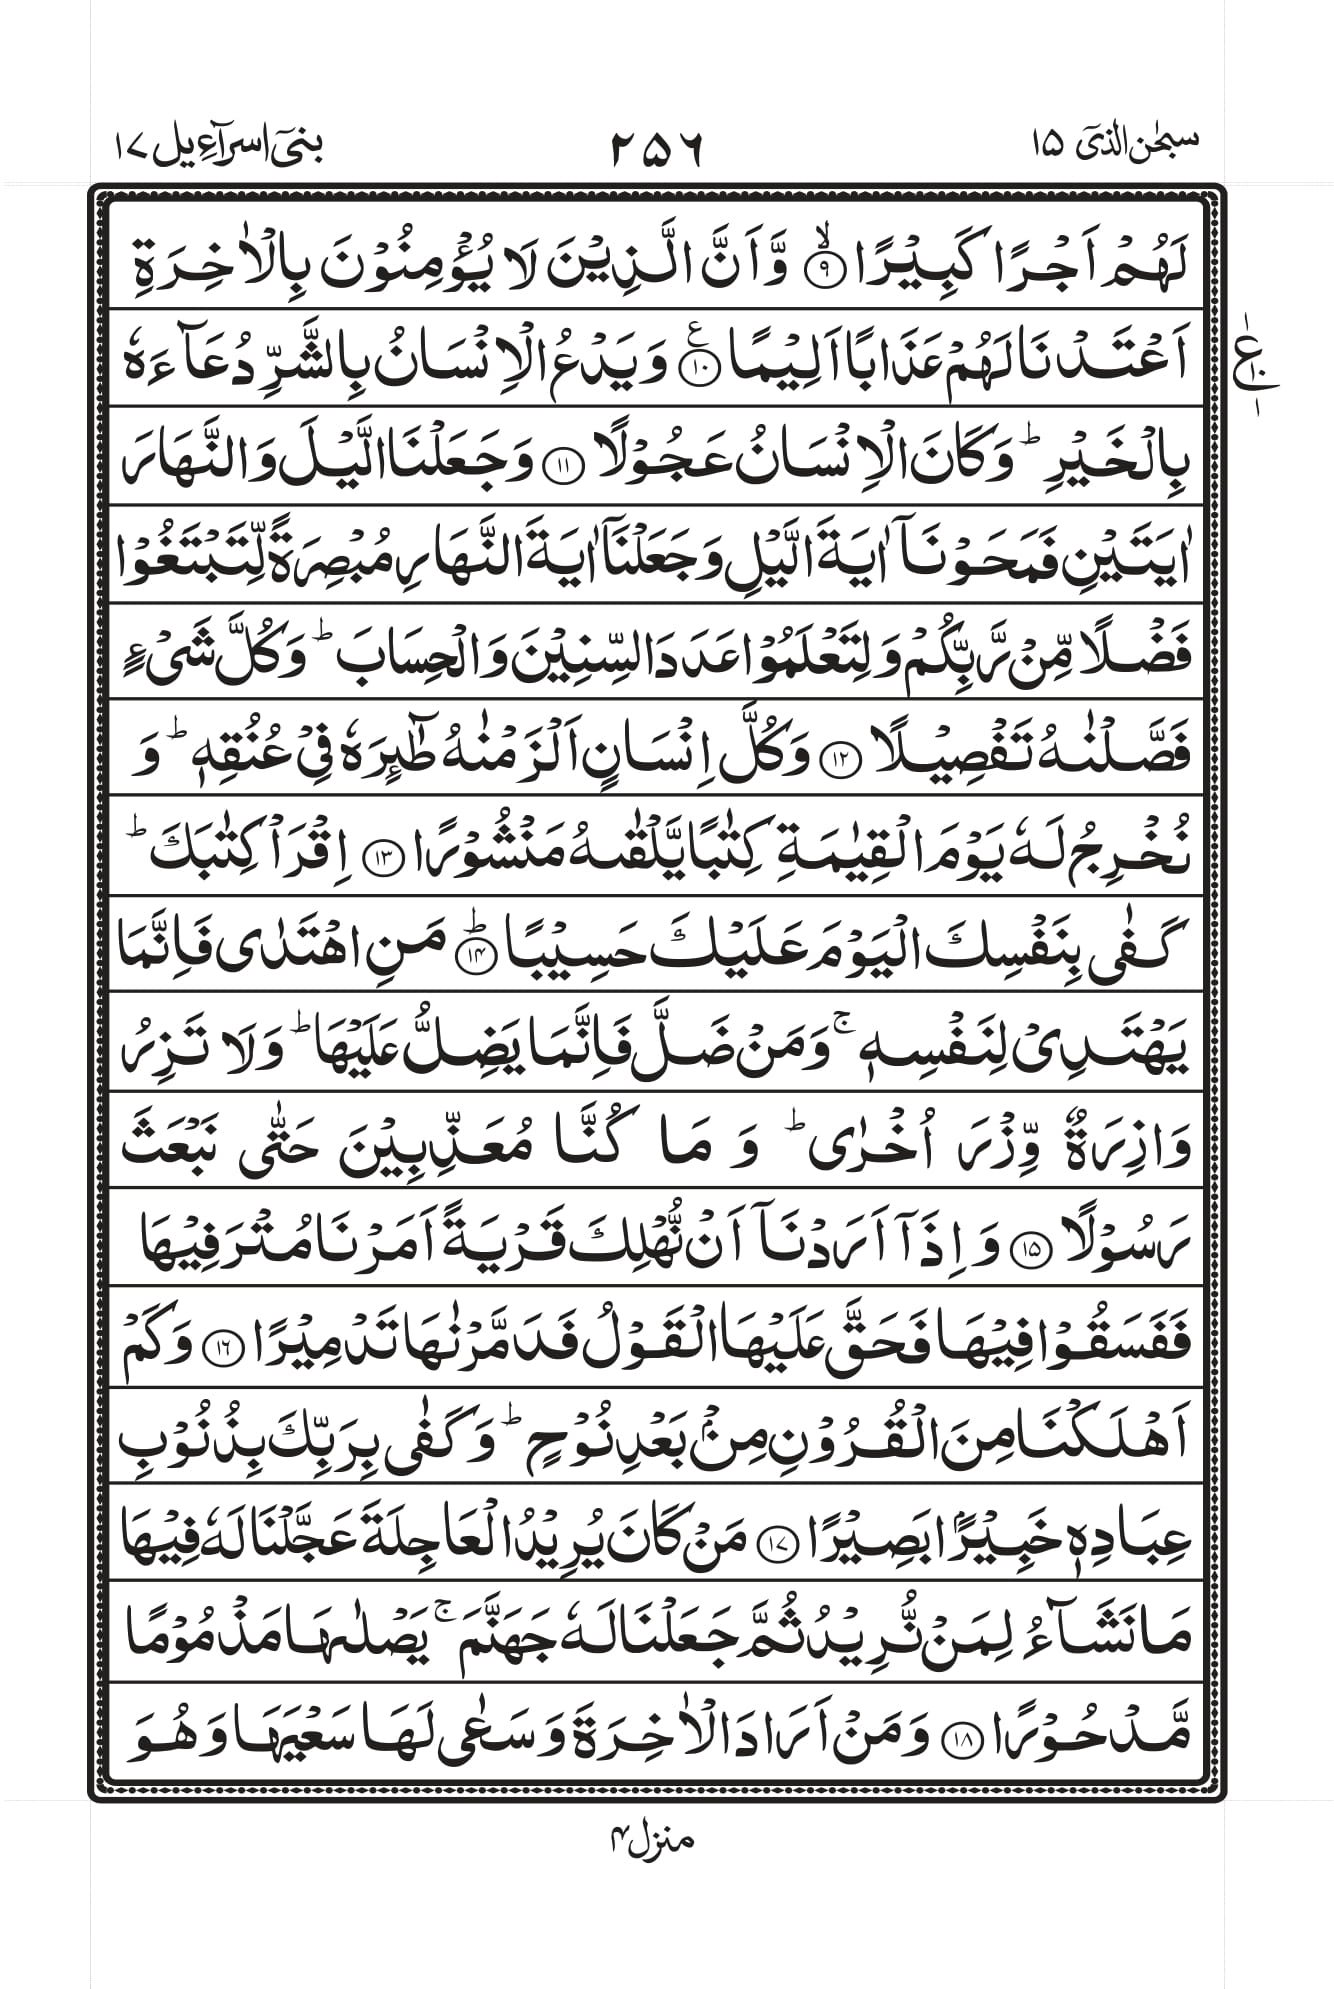 سبحٰن الذیٓ ۱۵
۲۵۶
بنیٓ اسرآءیل ۱۷
لَهُمْ اَجْرًا كَبِیْرًا ۙ﴿۹﴾ وَّ اَنَّ الَّذِیْنَ لَا یُؤْمِنُوْنَ بِالْاٰخِرَةِ
اَعْتَدْنَا لَهُمْ عَذَابًا اَلِیْمًا ﴿۱۰﴾ ع وَ یَدْعُ الْاِنْسَانُ بِالشَّرِّ دُعَآءَهٗ
ع ۱ ۱۰ ۱
بِالْخَیْرِ ؕ وَ كَانَ الْاِنْسَانُ عَجُوْلًا ﴿۱۱﴾ وَ جَعَلْنَا الَّیْلَ وَ النَّهَارَ
اٰیَتَیْنِ فَمَحَوْنَاۤ اٰیَةَ الَّیْلِ وَ جَعَلْنَاۤ اٰیَةَ النَّهَارِ مُبْصِرَةً لِّتَبْتَغُوْا
فَضْلًا مِّنْ رَّبِّكُمْ وَ لِتَعْلَمُوْا عَدَدَ السِّنِیْنَ وَ الْحِسَابَ ؕ وَ كُلَّ شَیْءٍ
فَصَّلْنٰهُ تَفْصِیْلًا ﴿۱۲﴾ وَ كُلَّ اِنْسَانٍ اَلْزَمْنٰهُ طٰٓئِرَهٗ فِیْ عُنُقِهٖ ؕ وَ
نُخْرِجُ لَهٗ یَوْمَ الْقِیٰمَةِ كِتٰبًا یَّلْقٰىهُ مَنْشُوْرًا ﴿۱۳﴾ اِقْرَاْ كِتٰبَكَ ؕ
كَفٰى بِنَفْسِكَ الْیَوْمَ عَلَیْكَ حَسِیْبًا ؕ﴿۱۴﴾ مَنِ اهْتَدٰى فَاِنَّمَا
یَهْتَدِیْ لِنَفْسِهٖ ۚ وَ مَنْ ضَلَّ فَاِنَّمَا یَضِلُّ عَلَیْهَا ؕ وَ لَا تَزِرُ
وَازِرَةٌ وِّزْرَ اُخْرٰى ؕ وَ مَا كُنَّا مُعَذِّبِیْنَ حَتّٰى نَبْعَثَ
رَسُوْلًا ﴿۱۵﴾ وَ اِذَاۤ اَرَدْنَاۤ اَنْ نُّهْلِكَ قَرْیَةً اَمَرْنَا مُتْرَفِیْهَا
فَفَسَقُوْا فِیْهَا فَحَقَّ عَلَیْهَا الْقَوْلُ فَدَمَّرْنٰهَا تَدْمِیْرًا ﴿۱۶﴾ وَ كَمْ
اَهْلَكْنَا مِنَ الْقُرُوْنِ مِنْۢ بَعْدِ نُوْحٍ ؕ وَ كَفٰى بِرَبِّكَ بِذُنُوْبِ
عِبَادِهٖ خَبِیْرًۢا بَصِیْرًا ﴿۱۷﴾ مَنْ كَانَ یُرِیْدُ الْعَاجِلَةَ عَجَّلْنَا لَهٗ فِیْهَا
مَا نَشَآءُ لِمَنْ نُّرِیْدُ ثُمَّ جَعَلْنَا لَهٗ جَهَنَّمَ ۚ یَصْلٰىهَا مَذْمُوْمًا
مَّدْحُوْرًا ﴿۱۸﴾ وَ مَنْ اَرَادَ الْاٰخِرَةَ وَ سَعٰى لَهَا سَعْیَهَا وَ هُوَ
منزل ۴